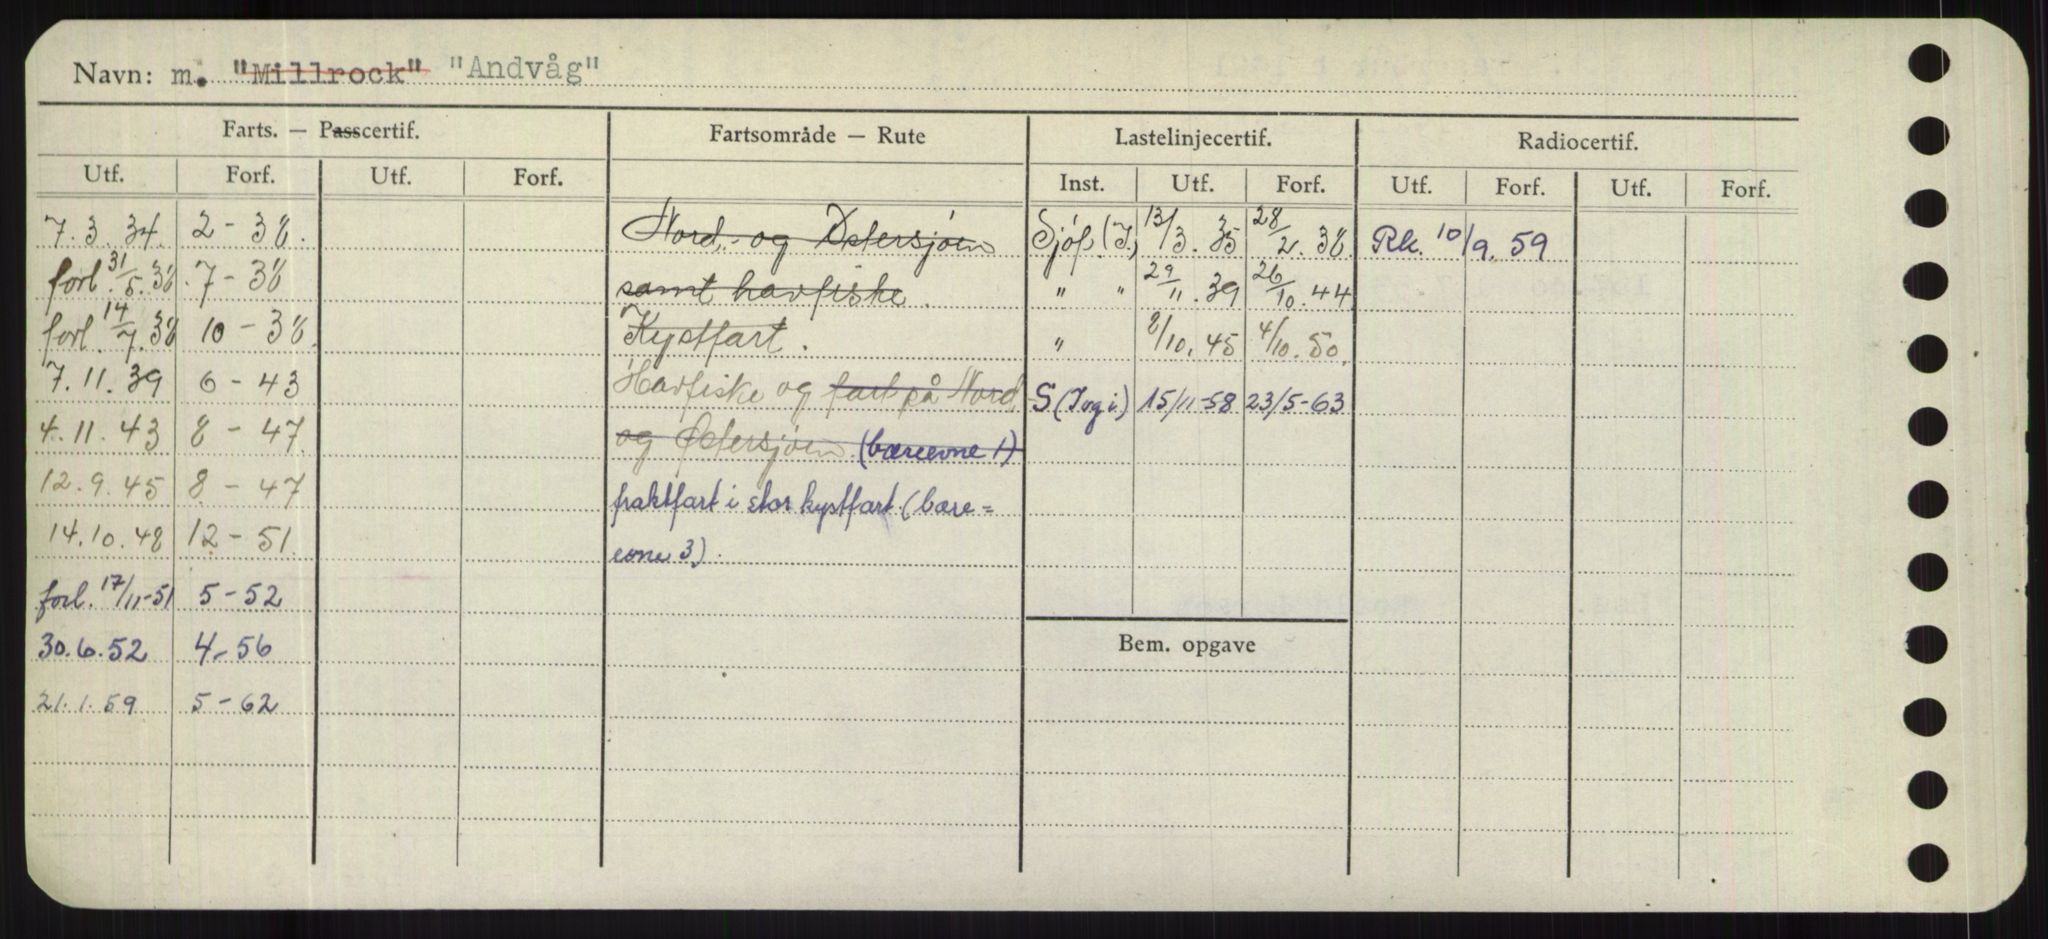 Navn: m. "Millrock" "Andvåg"
Farts. — Passcertif. Fartsområde — Rute Lastelinjecertif. Radiocertif.
Utf. Forf. Utf. Forf. Inst. Utf. Forf. Utf. Forf. Utf. Forf.
7.3.34. 2-38. Nord- og Østersjøen Sjöf. (I.) 13/3.35 28/2.38. Rk. 10/9.59
forl. 31/5.38. 7-38 samt havfiske. " " 29/11.39 26/10.44
forl. 14/7.38 10-38. Kystfart. " 8/10.45 4/10.50.
7.11.39 6-43 Havfiske og fart på Nord S (I og i.) 15/11-58 23/5-63
4.11.43 8-47. og Østersjøen (bæreevne 1)
12.9.45 8-47 fraktfart i stor kystfart (bære=
14.10.48 12-51. evne 3).
forl. 17/11-51 5-52
30.6.52 4-56 Bem. opgave
21.1.59 5-62